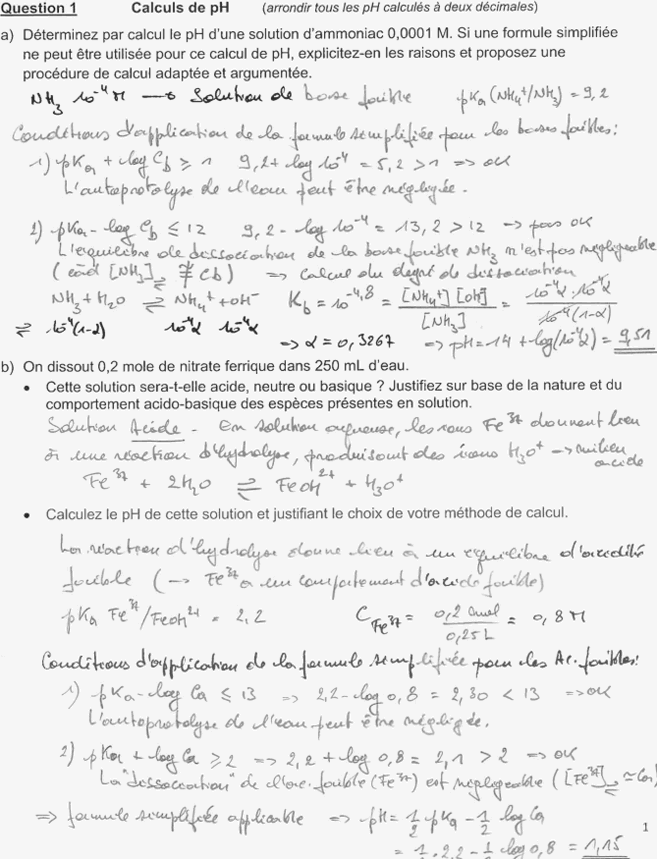 Question 1 Calculs de pH (arrondir tous les pH calculés à deux décimales)
a) Déterminez par calcul le pH d'une solution d'ammoniac 0,0001 M. Si une formule simplifiée
ne peut être utilisée pour ce calcul de pH, explicitez-en les raisons et proposez une
procédure de calcul adaptée et argumentée.
NH₃ 10⁻⁴ M → Solution de base faible pKa (NH₄⁺/NH₃) = 9,2
Conditions d'application de la formule simplifiée pour les bases faibles :
1) pKa + log Cb ≥ 1 9,2 + log 10⁻⁴ = 5,2 > 1 => OK
L'autoprotolyse de l'eau peut être négligée.
2) pKa - log Cb ≤ 12 9,2 - log 10⁻⁴ = 13,2 > 12 → pas OK
L'équilibre de dissociation de la base faible NH₃ n'est pas négligeable
(càd [NH₃]⇌ ≠ Cb) => calcul du degré de dissociation
NH₃ + H₂O ⇌ NH₄⁺ + OH⁻ Kb = 10⁻⁴,⁸ = [NH₄⁺] [OH⁻] / [NH₃] = 10⁻⁴α . 10⁻⁴α / 10⁻⁴(1-α)
⇌ 10⁻⁴(1-α) 10⁻⁴α 10⁻⁴α
=> α = 0,3267 => pH = 14 + log(10⁻⁴α) = 9,51
b) On dissout 0,2 mole de nitrate ferrique dans 250 mL d'eau.
• Cette solution sera-t-elle acide, neutre ou basique ? Justifiez sur base de la nature et du
comportement acido-basique des espèces présentes en solution.
Solution Acide. En solution aqueuse, les ions Fe³⁺ donnent lieu
à une réaction d'hydrolyse, produisant des ions H₃O⁺ → milieu
acide
Fe³⁺ + 2H₂O ⇌ FeOH²⁺ + H₃O⁺
• Calculez le pH de cette solution et justifiant le choix de votre méthode de calcul.
La réaction d'hydrolyse donne lieu à un équilibre d'acidité
faible (→ Fe³⁺ a un comportement d'acide faible)
pKa Fe³⁺/FeOH²⁺ = 2,2 C Fe³⁺ = 0,2 mol / 0,25 L = 0,8 M
Conditions d'application de la formule simplifiée pour les Ac. faibles :
1) pKa - log Ca ≤ 13 => 2,2 - log 0,8 = 2,30 < 13 => OK
L'autoprotolyse de l'eau peut être négligée.
2) pKa + log Ca ≥ 2 => 2,2 + log 0,8 = 2,1 > 2 => OK
La "dissociation" de l'ac. faible (Fe³⁺) est négligeable ([Fe³⁺]⇌ ≃ Ca)
=> formule simplifiée applicable => pH = 1/2 pKa - 1/2 log Ca
= 1/2 . 2,2 - 1/2 log 0,8 = 1,15
1